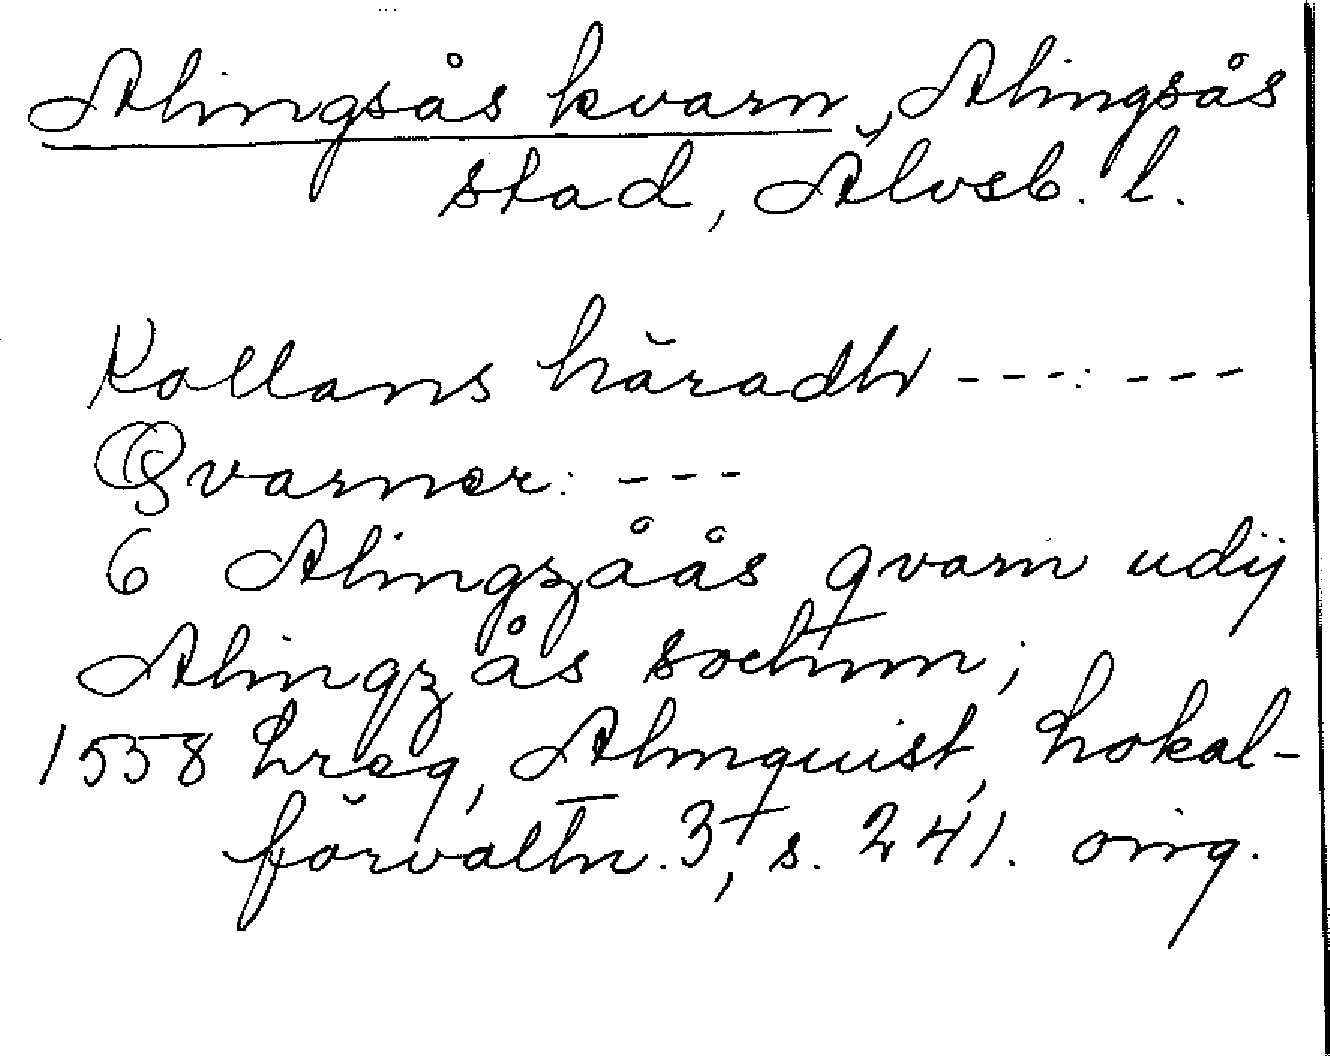 Alingsås kvarn, Alingsås
stad, Älvsb. l.
Kollans häradh ---:---
Qvarner: ---
6 Alingzåås qvarn udij
Alingzås sochnn;
1558 hreg, Almquist, Lokal-
förvaltn. 3, s. 241. orig.